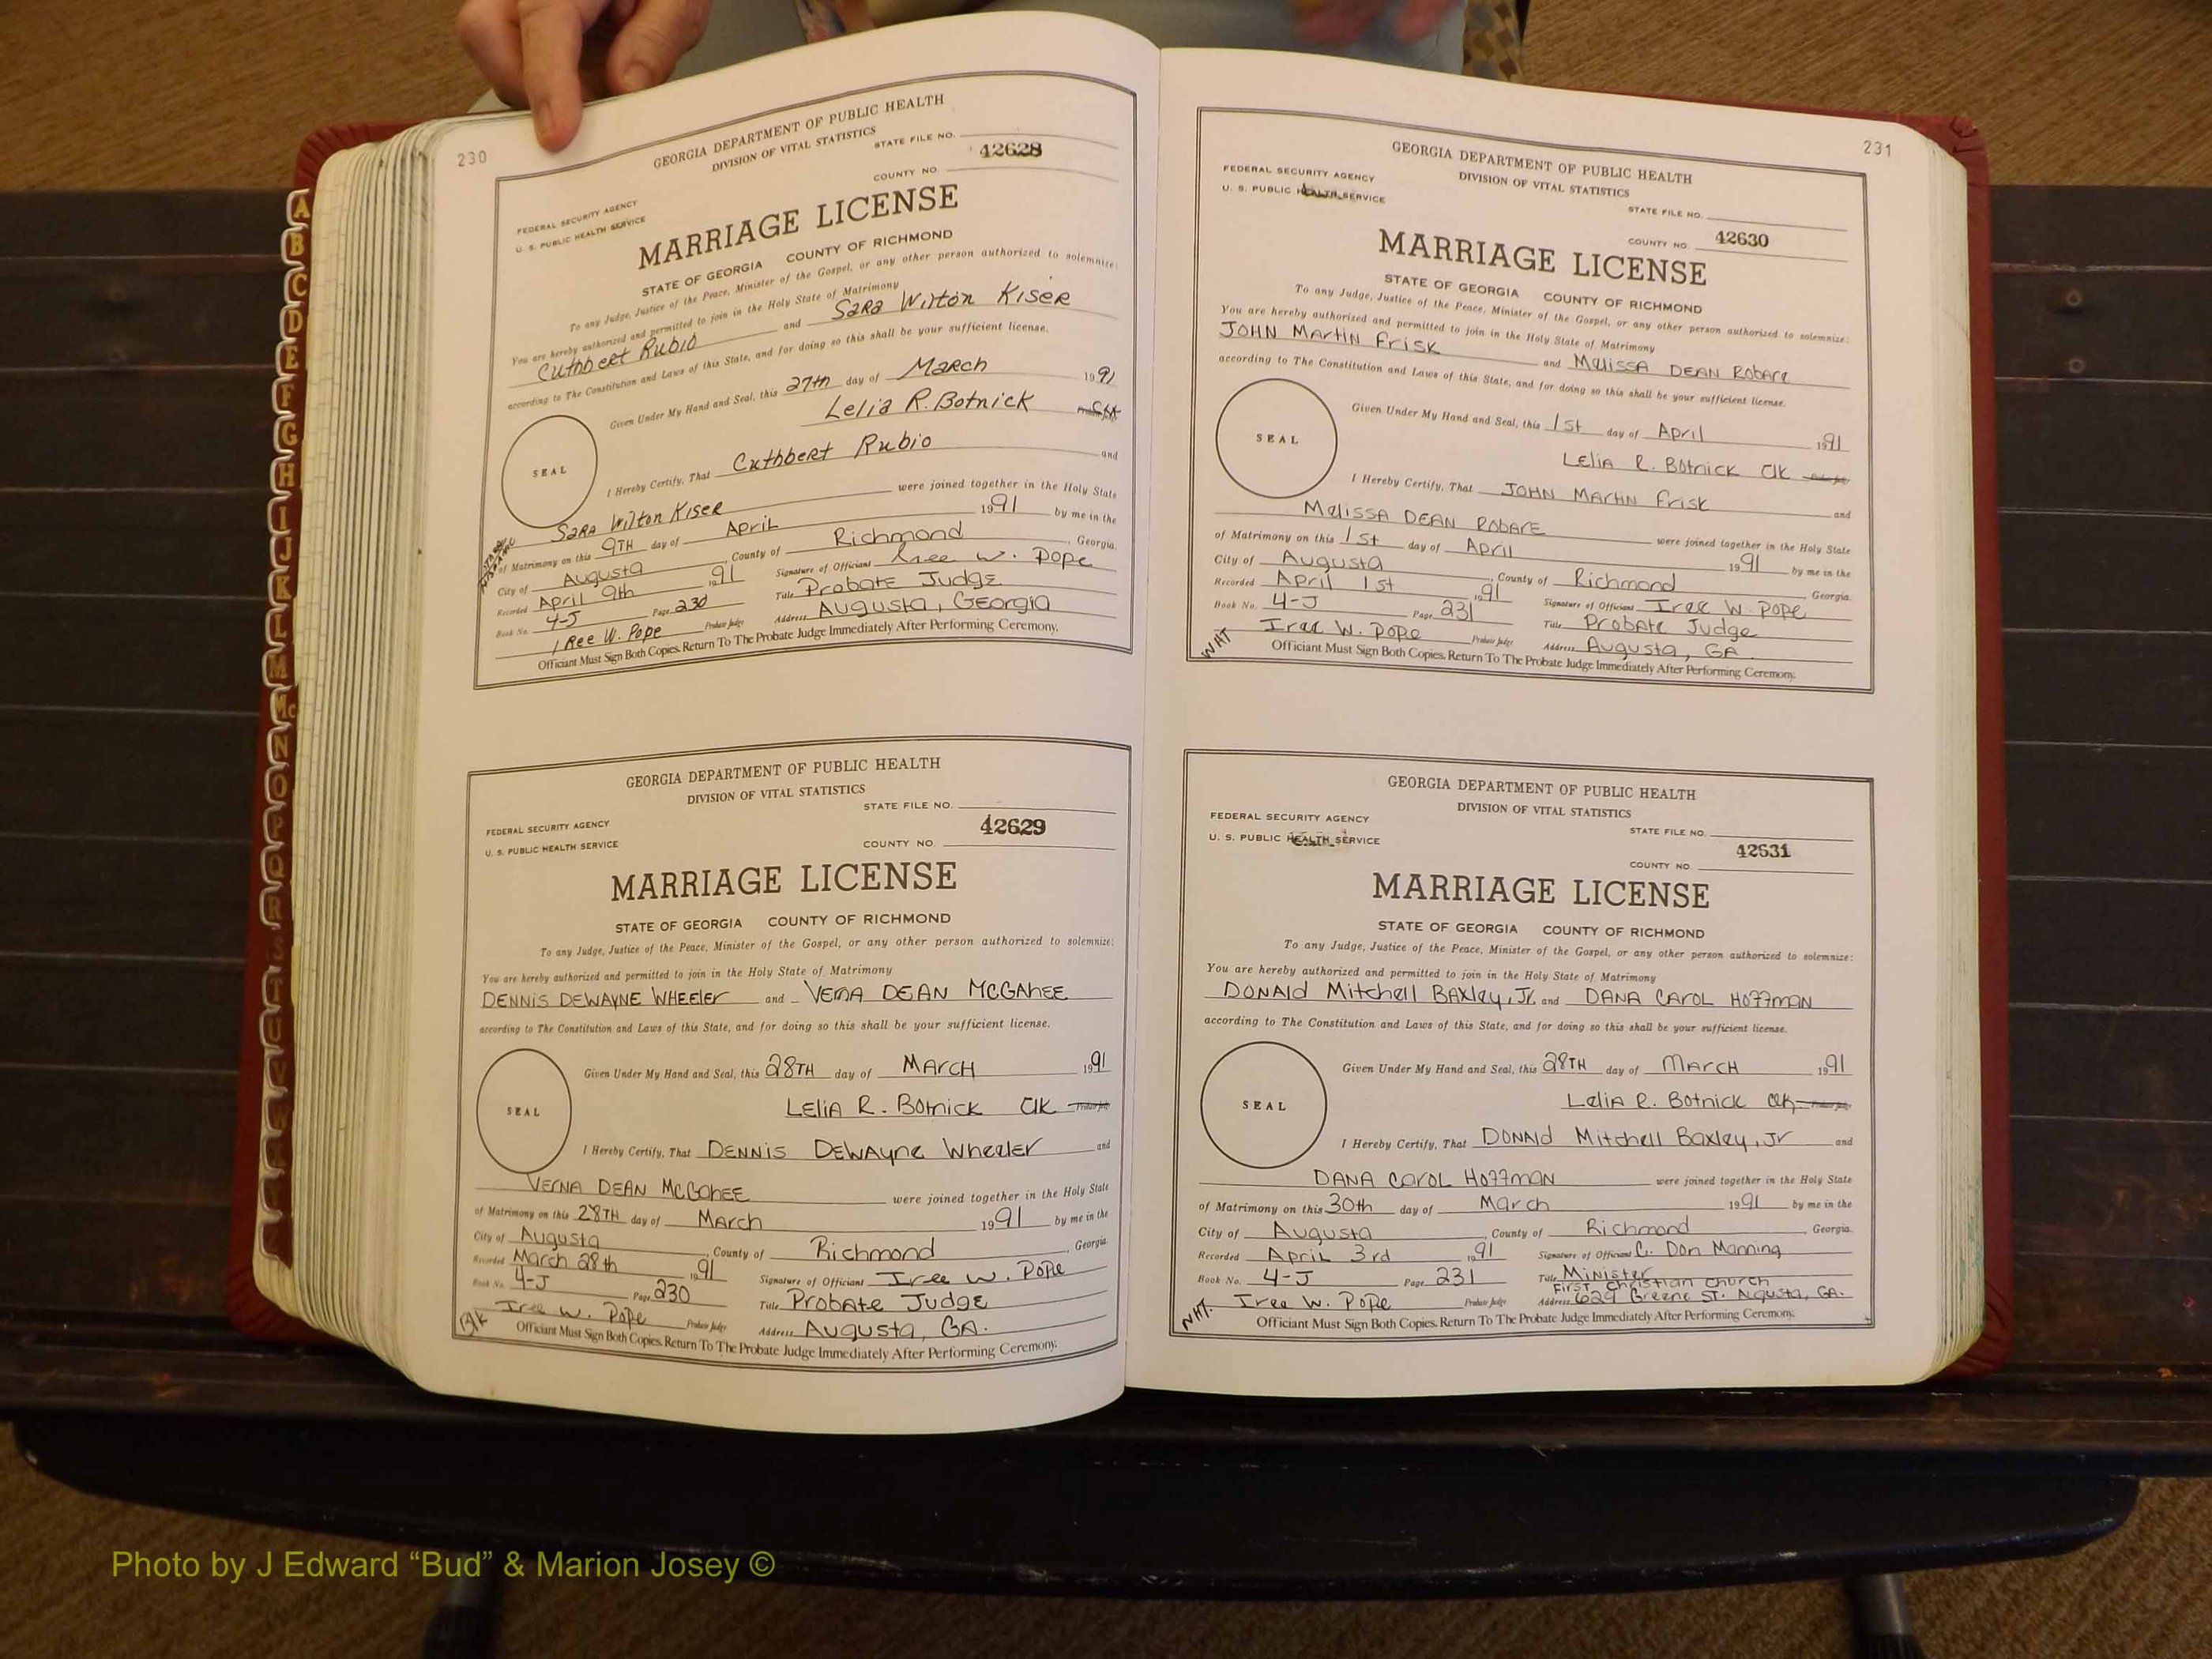 230
GEORGIA DEPARTMENT OF PUBLIC HEALTH
DIVISION OF VITAL STATISTICS
STATE FILE NO.
42628
COUNTY NO.
FEDERAL SECURITY AGENCY
U. S. PUBLIC HEALTH SERVICE
MARRIAGE LICENSE
STATE OF GEORGIA COUNTY OF RICHMOND
To any Judge, Justice of the Peace, Minister of the Gospel, or any other person authorized to solemnize:
You are hereby authorized and permitted to join in the Holy State of Matrimony
Cuthbert Rubio and Sara Wilton Kiser
according to The Constitution and Laws of this State, and for doing so this shall be your sufficient license.
Given Under My Hand and Seal, this 27th day of March 1991
Lelia R. Botnick Clk
SEAL
I Hereby Certify, That Cuthbert Rubio and
Sara Wilton Kiser were joined together in the Holy State
of Matrimony on this 9TH day of April 1991 by me in the
City of Augusta, County of Richmond, Georgia.
Recorded April 9th 1991 Signature of Officiant Iree W. Pope
Book No. 4-J Page 230 Title Probate Judge
Iree W. Pope Probate Judge Address Augusta, Georgia
Officiant Must Sign Both Copies. Return To The Probate Judge Immediately After Performing Ceremony.
GEORGIA DEPARTMENT OF PUBLIC HEALTH
DIVISION OF VITAL STATISTICS
STATE FILE NO.
FEDERAL SECURITY AGENCY
42629
U. S. PUBLIC HEALTH SERVICE
COUNTY NO.
MARRIAGE LICENSE
STATE OF GEORGIA COUNTY OF RICHMOND
To any Judge, Justice of the Peace, Minister of the Gospel, or any other person authorized to solemnize:
You are hereby authorized and permitted to join in the Holy State of Matrimony
DENNIS DEWAYNE WHEELER and VERNA DEAN MCGAHEE
according to The Constitution and Laws of this State, and for doing so this shall be your sufficient license.
Given Under My Hand and Seal, this 28TH day of MARCH 1991
LELIA R. Botnick Clk Probate Judge
SEAL
I Hereby Certify, That DENNIS DEWAYNE Wheeler and
VERNA DEAN MCGAHEE were joined together in the Holy State
of Matrimony on this 28TH day of March 1991 by me in the
City of Augusta, County of Richmond, Georgia.
Recorded March 28th 1991 Signature of Officiant Iree W. Pope
Book No. 4-J Page 230 Title Probate Judge
Blk Iree W. Pope Probate Judge Address Augusta, GA.
Officiant Must Sign Both Copies. Return To The Probate Judge Immediately After Performing Ceremony.
231
GEORGIA DEPARTMENT OF PUBLIC HEALTH
DIVISION OF VITAL STATISTICS
FEDERAL SECURITY AGENCY
U. S. PUBLIC HEALTH SERVICE
STATE FILE NO.
COUNTY NO. 42630
MARRIAGE LICENSE
STATE OF GEORGIA COUNTY OF RICHMOND
To any Judge, Justice of the Peace, Minister of the Gospel, or any other person authorized to solemnize:
You are hereby authorized and permitted to join in the Holy State of Matrimony
JOHN Martin Frisk and Melissa DEAN Robare
according to The Constitution and Laws of this State, and for doing so this shall be your sufficient license.
Given Under My Hand and Seal, this 1st day of April 1991
LELIA R. Botnick Clk Probate Judge
SEAL
I Hereby Certify, That JOHN MARTIN Frisk and
Melissa DEAN ROBARE were joined together in the Holy State
of Matrimony on this 1st day of April 1991 by me in the
City of Augusta, County of Richmond Georgia.
Recorded April 1st 1991 Signature of Officiant Iree W. Pope
Book No. 4-J Page 231 Title Probate Judge
WHT Iree W. Pope Probate Judge Address Augusta, GA
Officiant Must Sign Both Copies. Return To The Probate Judge Immediately After Performing Ceremony.
GEORGIA DEPARTMENT OF PUBLIC HEALTH
DIVISION OF VITAL STATISTICS
FEDERAL SECURITY AGENCY
STATE FILE NO.
U. S. PUBLIC HEALTH SERVICE
42631
COUNTY NO.
MARRIAGE LICENSE
STATE OF GEORGIA COUNTY OF RICHMOND
To any Judge, Justice of the Peace, Minister of the Gospel, or any other person authorized to solemnize:
You are hereby authorized and permitted to join in the Holy State of Matrimony
DONALD Mitchell BAXley, Jr. and DANA CAROL Hoffman
according to The Constitution and Laws of this State, and for doing so this shall be your sufficient license.
Given Under My Hand and Seal, this 28TH day of March 1991
Lelia R. Botnick Clk Probate Judge
SEAL
I Hereby Certify, That DONALD Mitchell Baxley, Jr and
DANA Carol Hoffman were joined together in the Holy State
of Matrimony on this 30th day of March 1991 by me in the
City of Augusta, County of Richmond, Georgia.
Recorded April 3rd 1991 Signature of Officiant C. Don Manning
Book No. 4-J Page 231 Title Minister
First Christian Church
WHT. Iree W. Pope Probate Judge Address 629 Greene St. Augusta, GA.
Officiant Must Sign Both Copies. Return To The Probate Judge Immediately After Performing Ceremony.
A
B
C
D
E
F
G
H
I
J
K
L
M
Mc
N
O
P
Q
R
S
T
U
V
W
Photo by J Edward “Bud” & Marion Josey ©